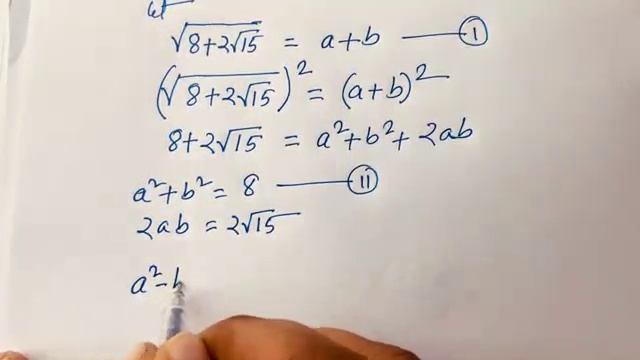 let
√(8+2√15) = a+b —— (I)
(√(8+2√15))² = (a+b)²
8+2√15 = a²+b²+2ab
a²+b² = 8 —— (II)
2ab = 2√15
a²-b